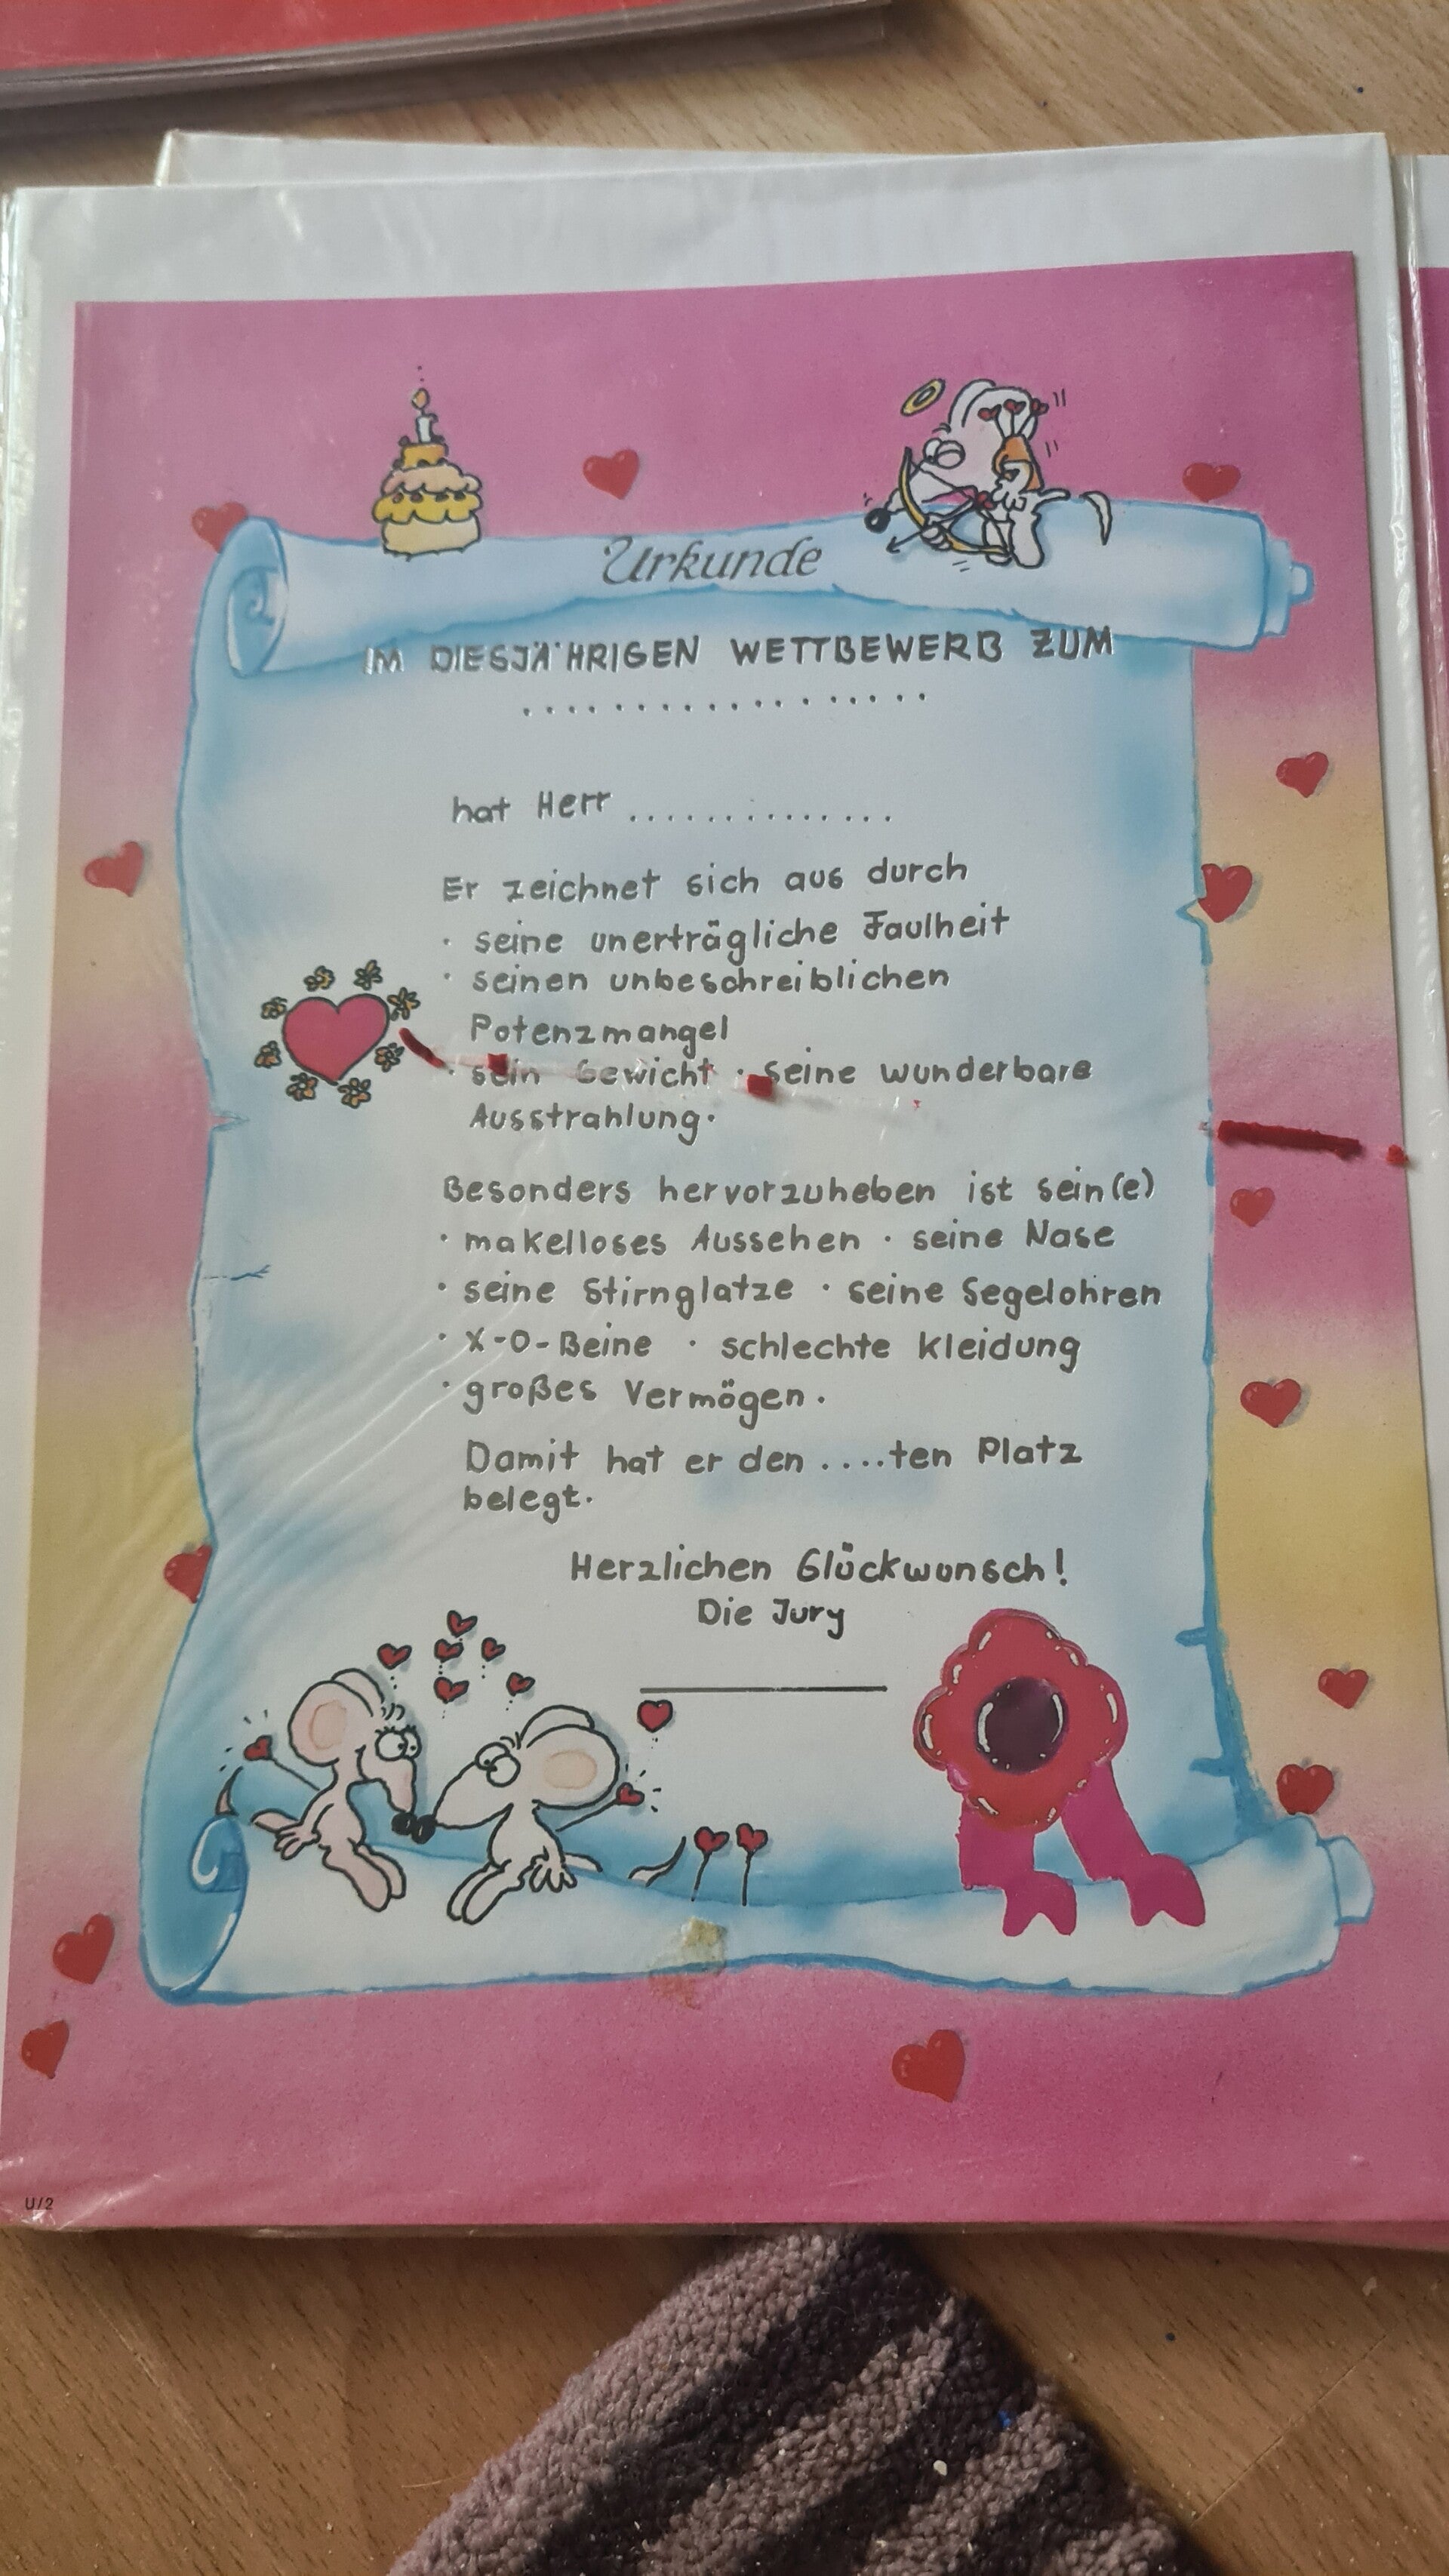 Urkunde
IM DIESJÄHRIGEN WETTBEWERB ZUM
..................
hat Herr ..............
Er zeichnet sich aus durch
· seine unerträgliche Faulheit
· seinen unbeschreiblichen
Potenzmangel
· sein Gewicht · seine wunderbare
Ausstrahlung.
Besonders hervorzuheben ist sein(e)
· makelloses Aussehen · seine Nase
· seine Stirnglatze · seine Segelohren
· X-O-Beine · schlechte Kleidung
· großes Vermögen.
Damit hat er den ....ten Platz
belegt.
Herzlichen Glückwunsch!
Die Jury
U/2